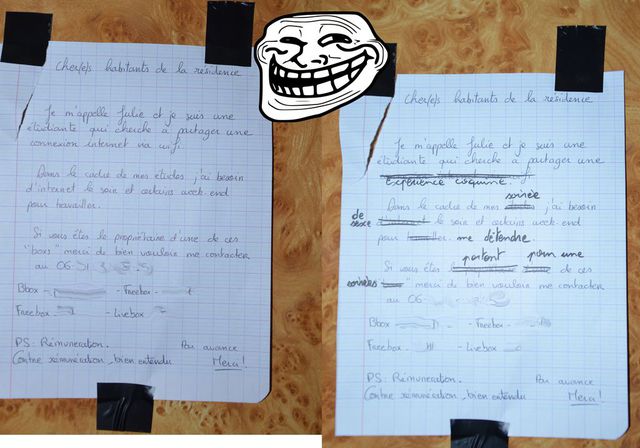 Cher/e/s habitants de la résidence
Je m'appelle Julie et je suis une
étudiante qui cherche à partager une
connexion internet via wifi.
Dans le cadre de mes études, j'ai besoin
d'internet le soir et certains week-end
pour travailler.
Si vous êtes le propriétaire d'une de ces
"boxs" merci de bien vouloir me contacter
au 06
Bbox - - Freebox -
Freebox - - Livebox -
PS: Rémunération. Par avance
Contre rémunération, bien entendu Merci!
Cher/e/s habitants de la résidence
Je m'appelle Julie et je suis une
étudiante qui cherche à partager une
expérience coquine.
soirée
Dans le cadre de mes j'ai besoin
de sexe le soir et certains week-end
pour me détendre.
partant pour une
Si vous êtes de ces
soirées merci de bien vouloir me contacter
au 06
Bbox - - Freebox -
Freebox - - Livebox -
PS: Rémunération. Par avance
Contre rémunération, bien entendu Merci!